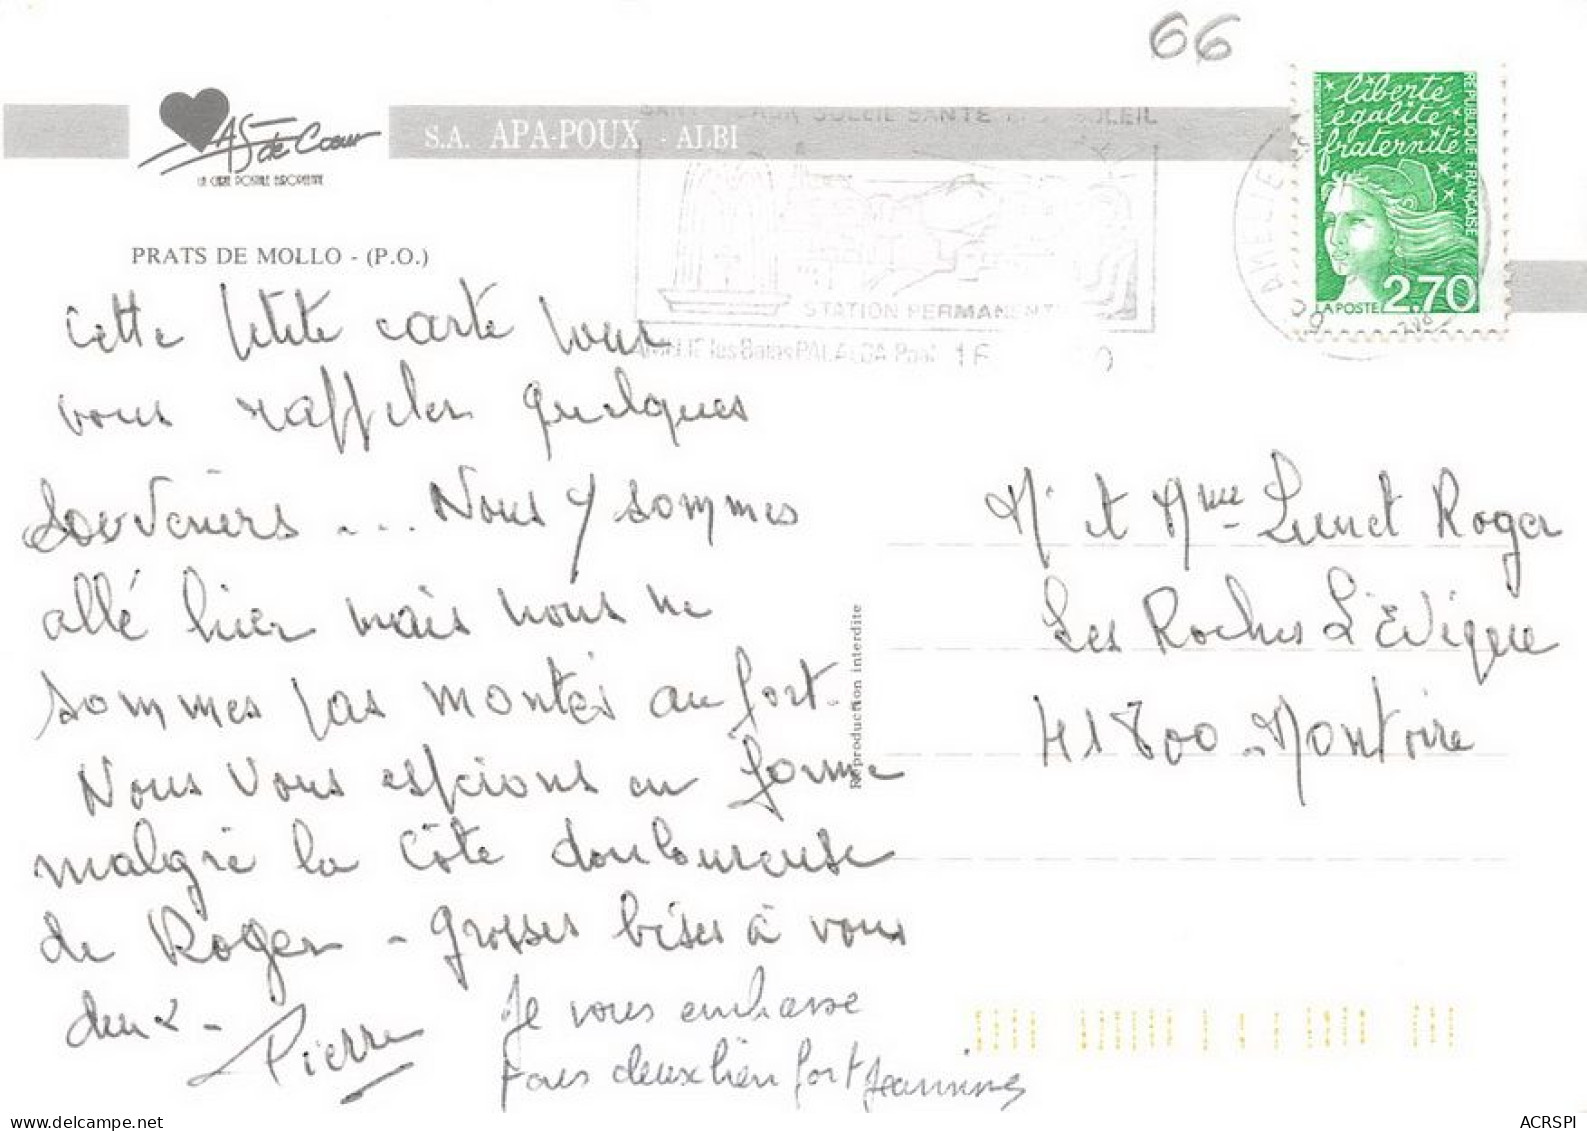 66
As de Coeur
LA CARTE POSTALE EUROPEENNE
S.A. APA-POUX - ALBI
SOLEIL SANTE SOLEIL
STATION PERMANENTE
AMELIE les Bains PALALDA 16
AMELIE
liberté
égalité
fraternité
REPUBLIQUE FRANÇAISE
LA POSTE 2,70
PRATS DE MOLLO - (P.O.)
Cette petite carte pour
vous rappeler quelques
souvenirs .... Nous y sommes
allé hier mais nous ne
sommes pas montés au fort.
Nous vous espérons en forme
malgré la côte douloureuse
de Roger - Grosses bises à vous
deux - Pierre
Je vous embrasse
tous deux bien fort Jeannine
Mr et Mme Lunet Roger
Les Roches L'Evêque
41800 - Montoire
Reproduction interdite
ACRSPI